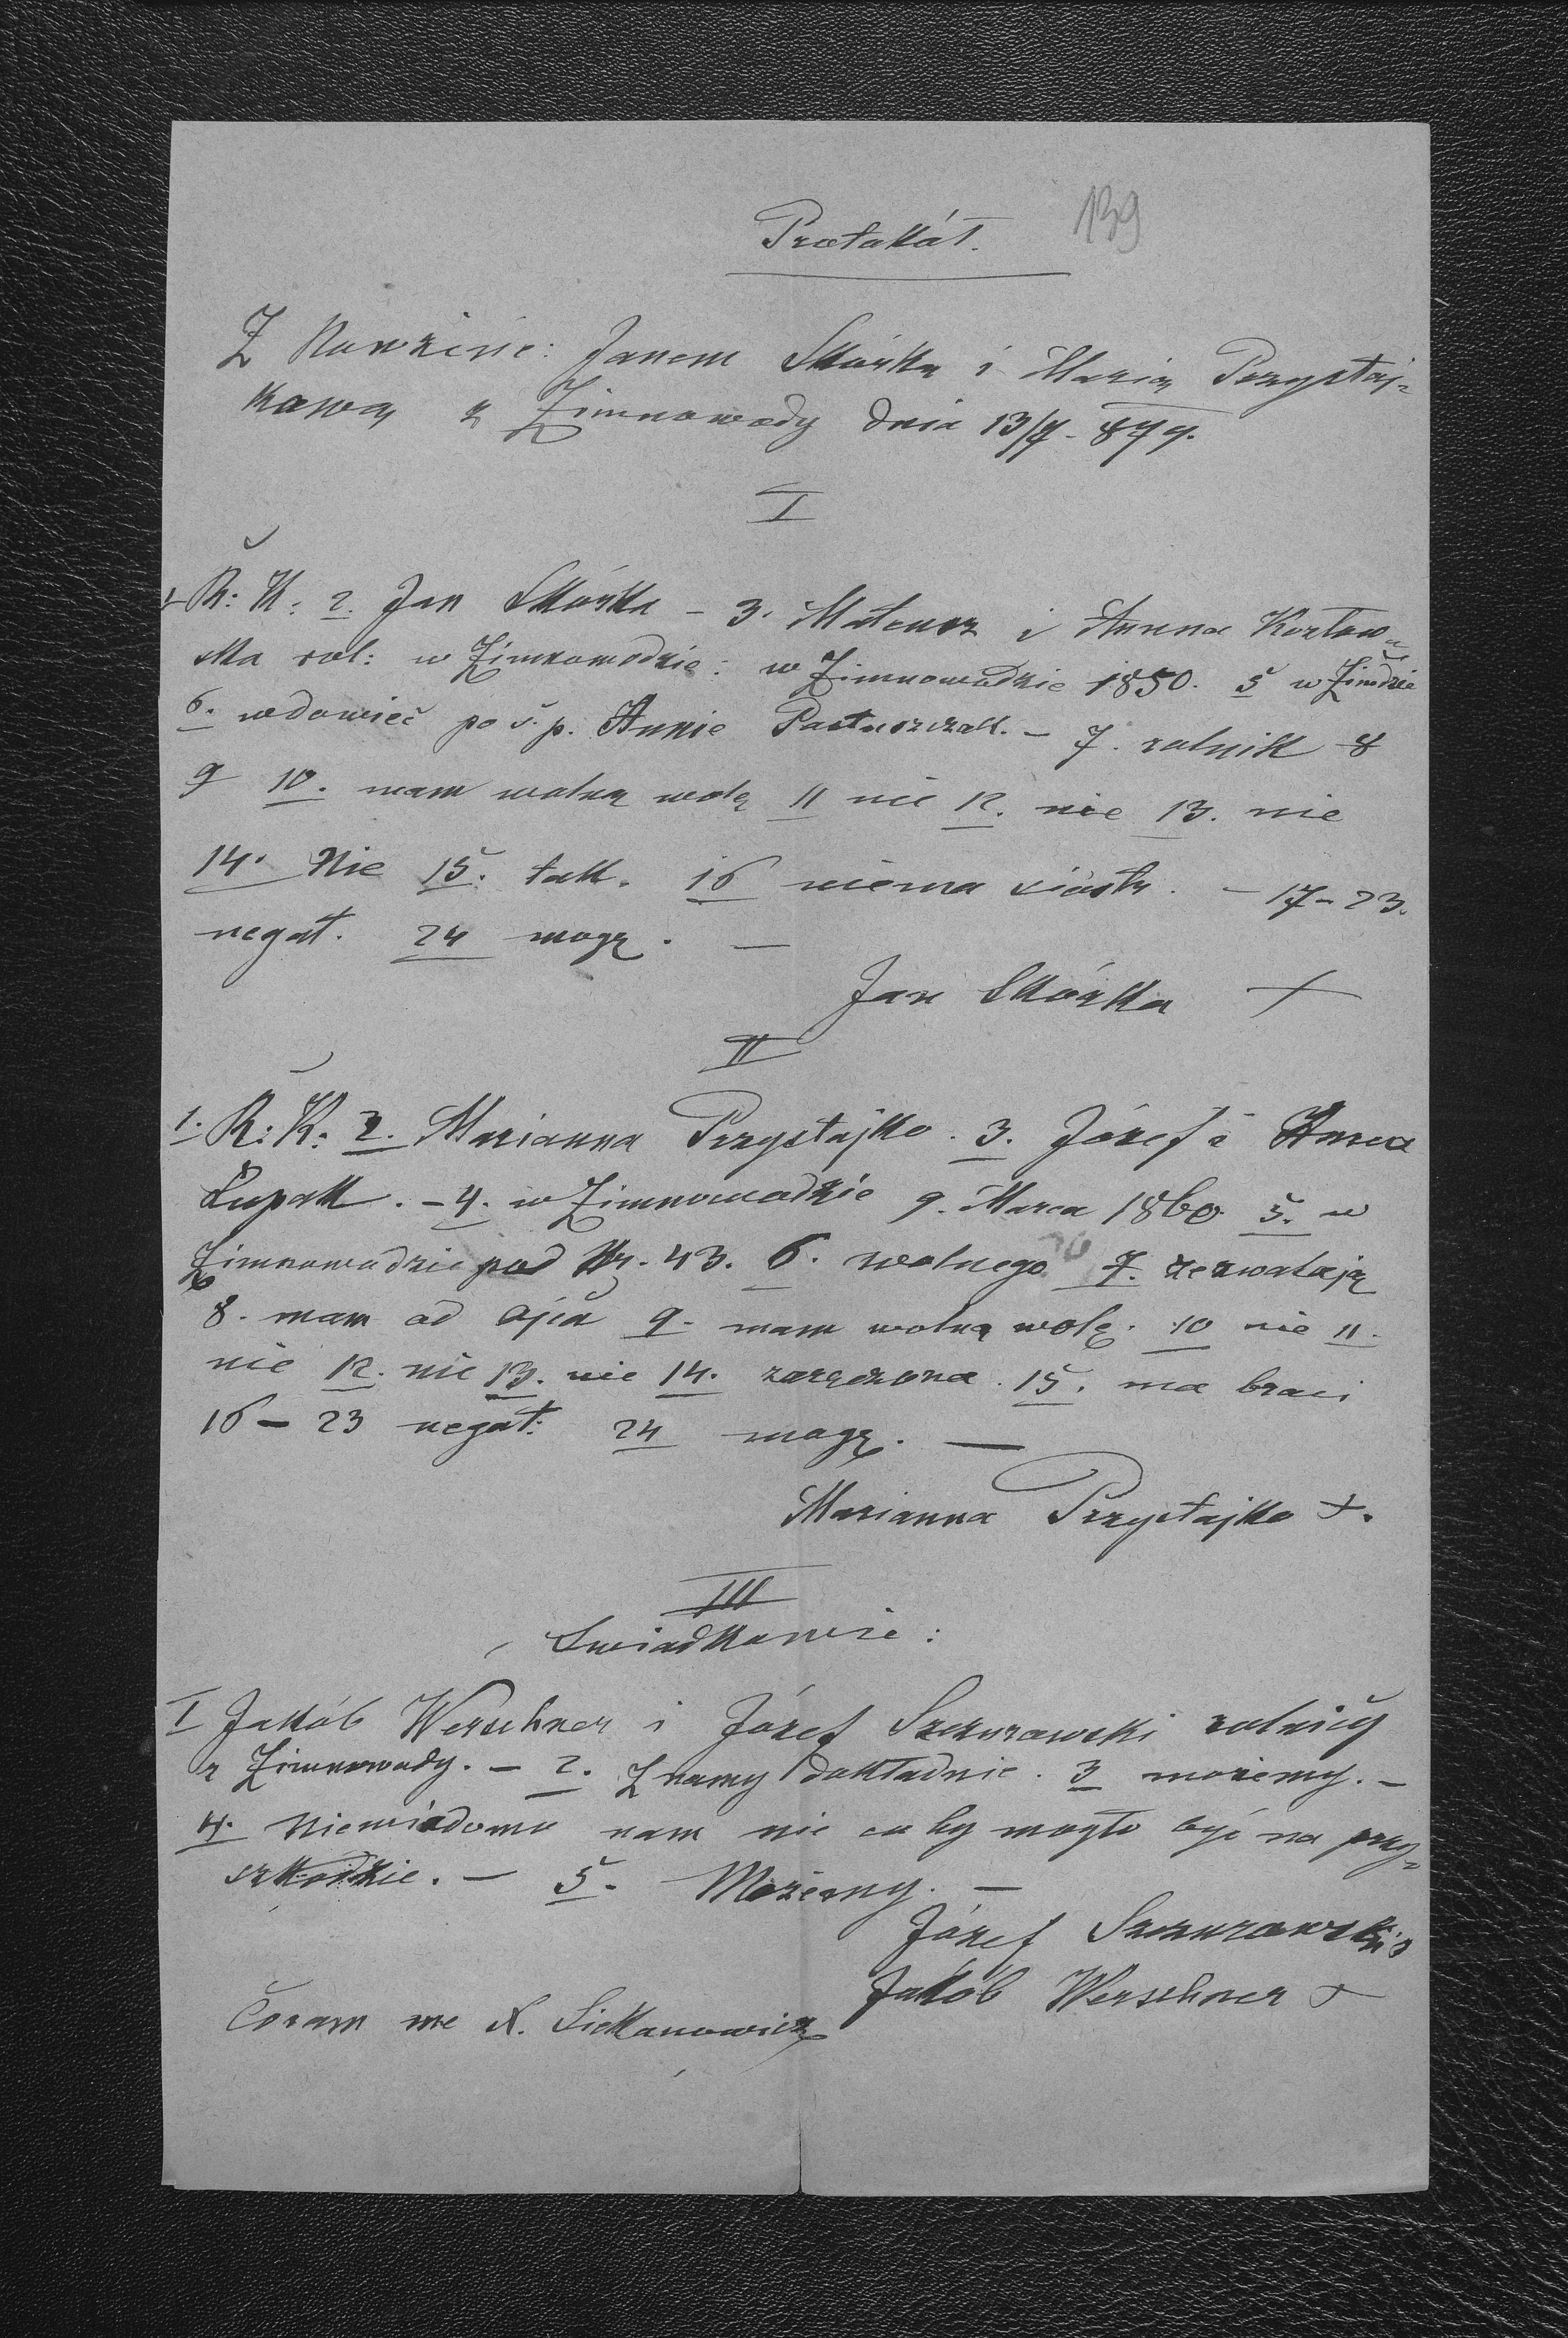 Protokół.
139
Z Nowżeńc: Janem Skórka i Marią Przystaj=
kową z Zimnowody dnia 13/7. 879.
I
1 R: K: 2. Jan Skórka – 3. Mateusz i Anna Kozłow=
ska rol: w Zimnowodzie: w Zimnowodzie 1850. 5 w Zimdzie
6. wdowiec po ś. p. Annie Pastuszczak. – 7. rolnik 8
9 10. mam wolną wolę 11 nie 12. nie 13. nie
14. Nie 15. tak. 16 niema siostr. – 17–23.
negat. 24 mogę. —
Jan Skórka +
II
1. R: K: 2. Marianna Przystajko. 3. Józef i Anna
Łupak. – 4. w Zimnowodzie 9. Marca 1860 5. w
Zimnowodzie pod Nr. 43. 6. wolnego 7. zezwalają
8. mam od ojca 9. mam wolną wolę. 10 nie 11.
nie 12. nie 13. nie 14. zaręczona. 15. ma braci
16–23 negat: 24 mogę. —
Marianna Przystajko +.
III
Świadkowie:
I Jakób Werschner i Józef Szczurowski rolnicy
z Zimnowody. – 2. Znamy dokładnie. 3 możemy. –
4. Niewiadomo nam nic co by mogło być na przy=
szkodzie. – 5. Możemy. –
Józef Szczurowski
Jakób Werschner +
Coram me X. Siekanowicz